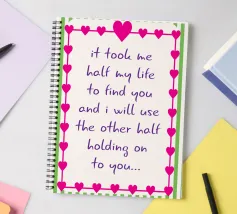 it took me
half my life
to find you
and i will use
the other half
holding on
to you...